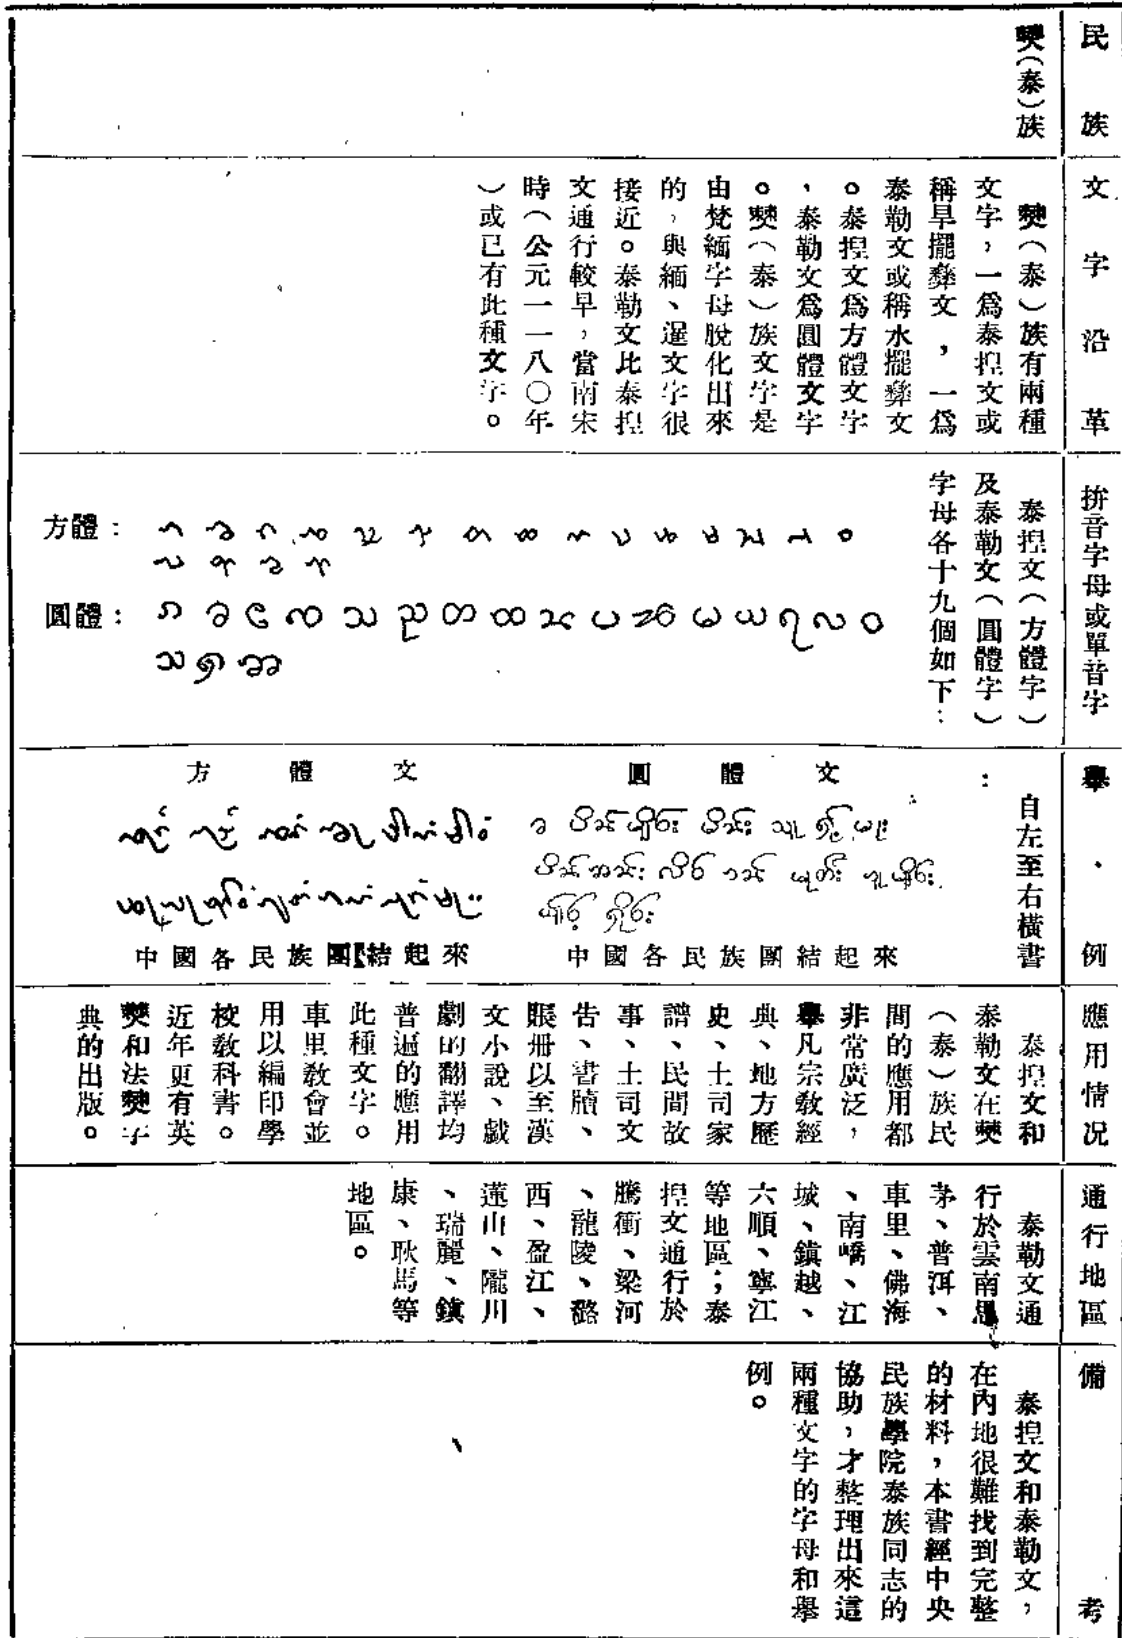 民族
僰(泰)族
文字沿革
僰(泰)族有兩種
文字,一爲泰捏文或
稱旱擺彝文,一爲
泰勒文或稱水擺彝文
。泰捏文爲方體文字
,泰勒文爲圓體文字
。僰(泰)族文字是
由梵緬字母脫化出來
的,與緬、暹文字很
接近。泰勒文比泰捏
文通行較早,當南宋
時(公元一一八〇年
)或已有此種文字。
拚音字母或單音字
泰捏文(方體字)
及泰勒文(圓體字)
字母各十九個如下:
方體:
圓體:
舉·例
自左至右橫書
:
方體文
中國各民族團結起來
圓體文
中國各民族團結起來
應用情况
泰捏文和
泰勒文在僰
(泰)族民
間的應用都
非常廣泛,
舉凡宗敎經
典、地方歷
史、土司家
譜、民間故
事、土司文
告、書牘、
賬册以至漢
文小說、戲
劇的翻譯均
普遍的應用
此種文字。
車里敎會並
用以編印學
校敎科書。
近年更有英
僰和法僰字
典的出版。
通行地區
泰勒文通
行於雲南思
茅、普洱、
車里、佛海
、南嶠、江
城、鎭越、
六順、寧江
等地區;泰
捏文通行於
騰衝、梁河
、龍陵、潞
西、盈江、
蓮山、隴川
、瑞麗、鎭
康、耿馬等
地區。
備考
泰捏文和泰勒文,
在內地很難找到完整
的材料,本書經中央
民族學院泰族同志的
協助,才整理出來這
兩種文字的字母和舉
例。